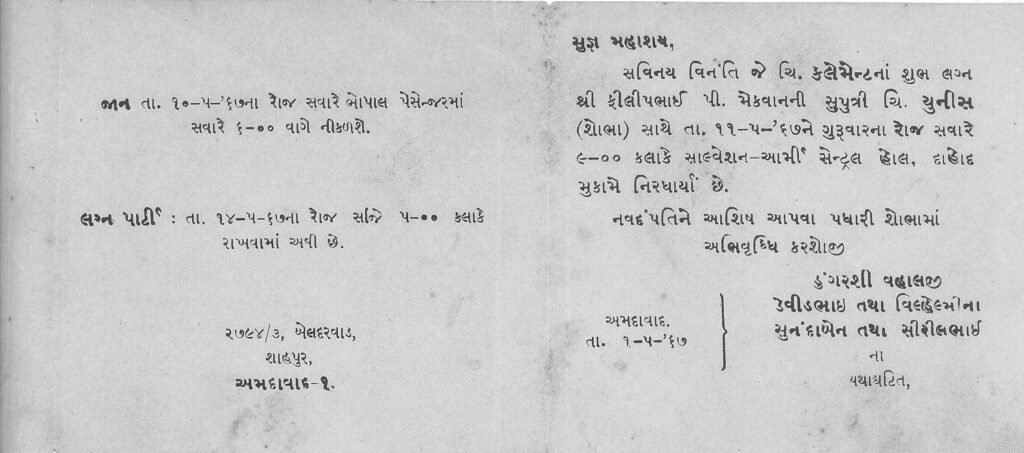 જાન તા. ૧૦-૫-'૬૭ના રોજ સવારે ભોપાલ પેસેન્જરમાં
સવારે ૬-૦૦ વાગે નીકળશે.
લગ્ન પાર્ટી : તા. ૧૪-૫-૬૭ના રોજ સાંજે ૫-૦૦ કલાકે
રાખવામાં અવી છે.
૨૭૯૪/૩, ખેલદરવાડ,
શાહપુર,
અમદાવાદ-૧.
સુજ્ઞ મહાશય,
સવિનય વિનંતિ જે ચિ. કલેમેન્ટનાં શુભ લગ્ન
શ્રી ફીલીપભાઈ પી. મેકવાનની સુપુત્રી ચિ. યુનીસ
(શોભા) સાથે તા. ૧૧-૫-'૬૭ને ગુરૂવારના રોજ સવારે
૯-૦૦ કલાકે સાલ્વેશન-આર્મી સેન્ટ્રલ હોલ, દાહોદ
મુકામે નિરધાર્યાં છે.
નવદંપતિને આશિષ આપવા પધારી શોભામાં
અભિવૃધ્ધિ કરશોજી
ડુંગરશી વહાલજી
ડેવીડભાઇ તથા વિલ્હેલ્મીના
સુનંદાબેન તથા સીરીલભાઈ
ના
યથાઘટિત,
અમદાવાદ.
તા. ૧-૫-'૬૭